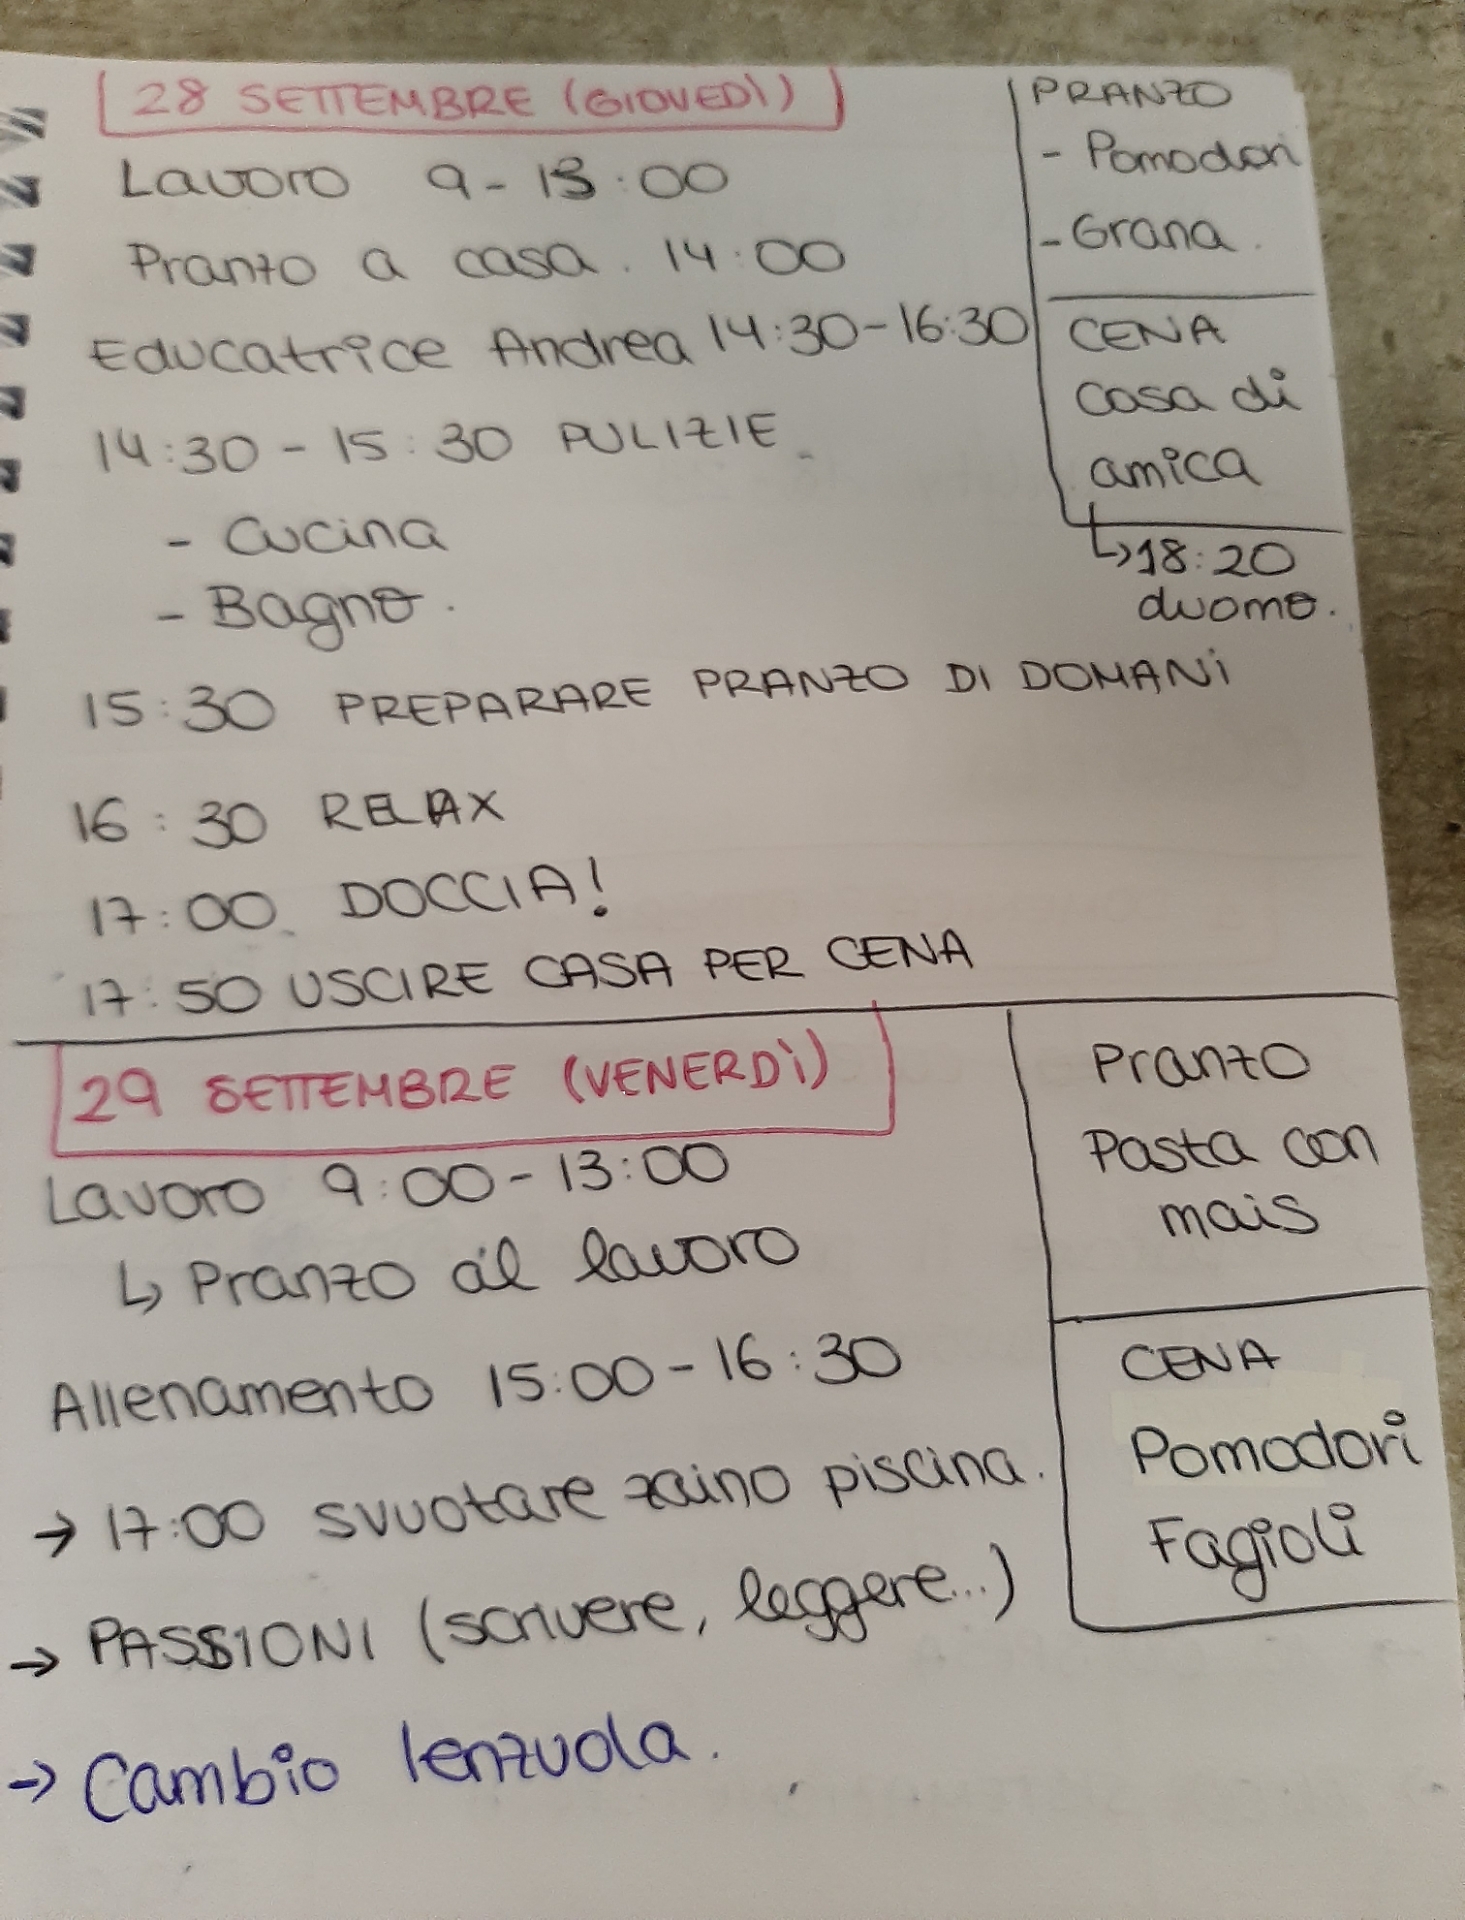 28 SETTEMBRE (GIOVEDÌ)
Lavoro 9-13:00
Pranzo a casa. 14:00
Educatrice Andrea 14:30-16:30
14:30 - 15:30 PULIZIE
- Cucina
- Bagno.
15:30 PREPARARE PRANZO DI DOMANI
16:30 RELAX
17:00 DOCCIA!
17:50 USCIRE CASA PER CENA
PRANZO
- Pomodori
- Grana.
CENA
casa di
amica
↳ 18:20
duomo.
29 SETTEMBRE (VENERDÌ)
Lavoro 9:00-13:00
↳ Pranzo al lavoro
Allenamento 15:00-16:30
→ 17:00 svuotare zaino piscina.
→ PASSIONI (scrivere, leggere...)
→ Cambio lenzuola.
Pranzo
Pasta con
mais
CENA
Pomodori
Fagioli